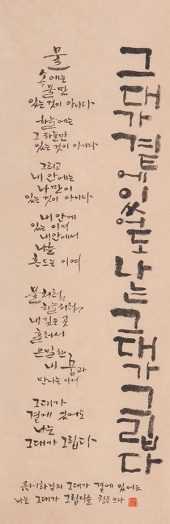 그대가 곁에 있어도 나는 그대가 그립다
물
속에는
물만
있는 것이 아니다
하늘에는
그 하늘만
있는 것이 아니다
그리고
내 안에는
나만이
있는 것이 아니다
내 안에
있는 이여
내 안에서
나를
흔드는 이여
물처럼
하늘처럼
내 깊은 곳
흘러서
은밀한
내 꿈과
만나는 이여
그대가
곁에 있어도
나는
그대가 그립다
류시화님의 그대가 곁에 있어도
나는 그대가 그립다를 쓰다